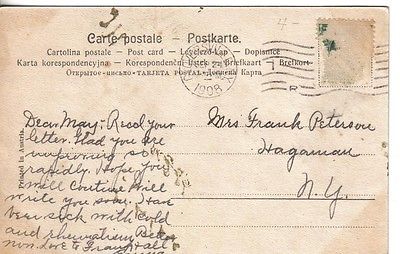 Carte postale — Postkarte.
Cartolina postale — Post card — Levelező-Lap — Dopisnice
Karta korespondencyjna — Korespondenční lístek — Briefkaart — Brefkort
Открытое письмо — TARJETA POSTAL — Дописна Карта
1908
Printed in Austria.
Dear May: Recd your
letter. Glad you are
improving so
rapidly. Hope you
will continue. Will
write you soon. Have
been sick with cold
and rheumatism. Better
now. Love to Frank & all
Mrs. Frank Peterson
Hagaman
N. Y.